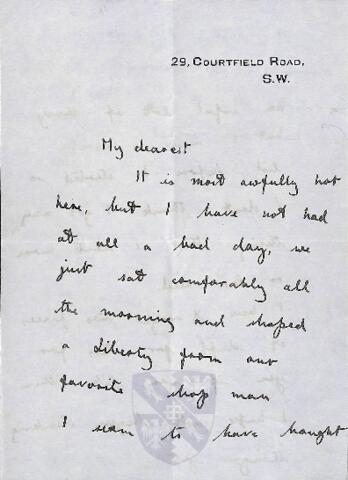 29, COURTFIELD ROAD,
S.W.
My dearest
It is most awfully hot
here, but I have not had
at all a bad day, we
just sat comfortably all
the morning and shoped
a Liberty from our
favorite shop man
I seem to have bought